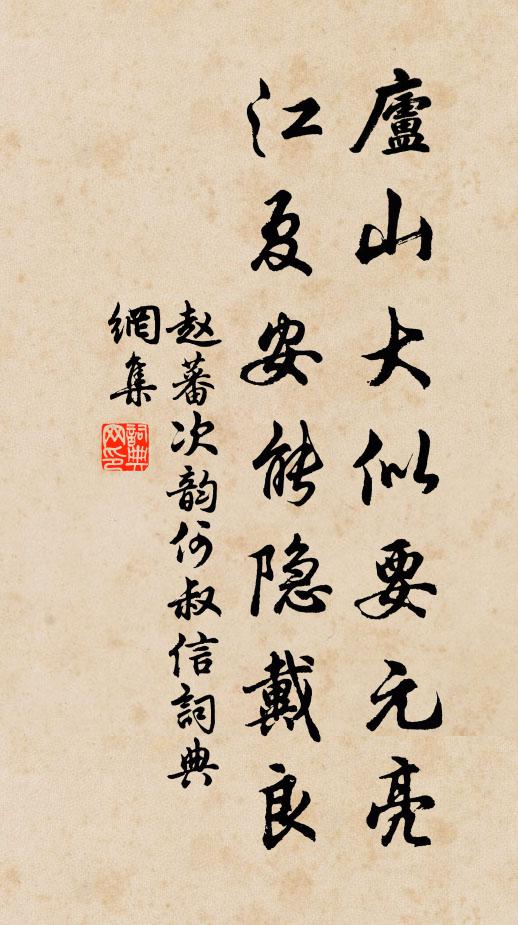 廬山大似要元亮
江夏安能隐戴良
赵蕃次韵何叔信詞典
網集
詞典
网印